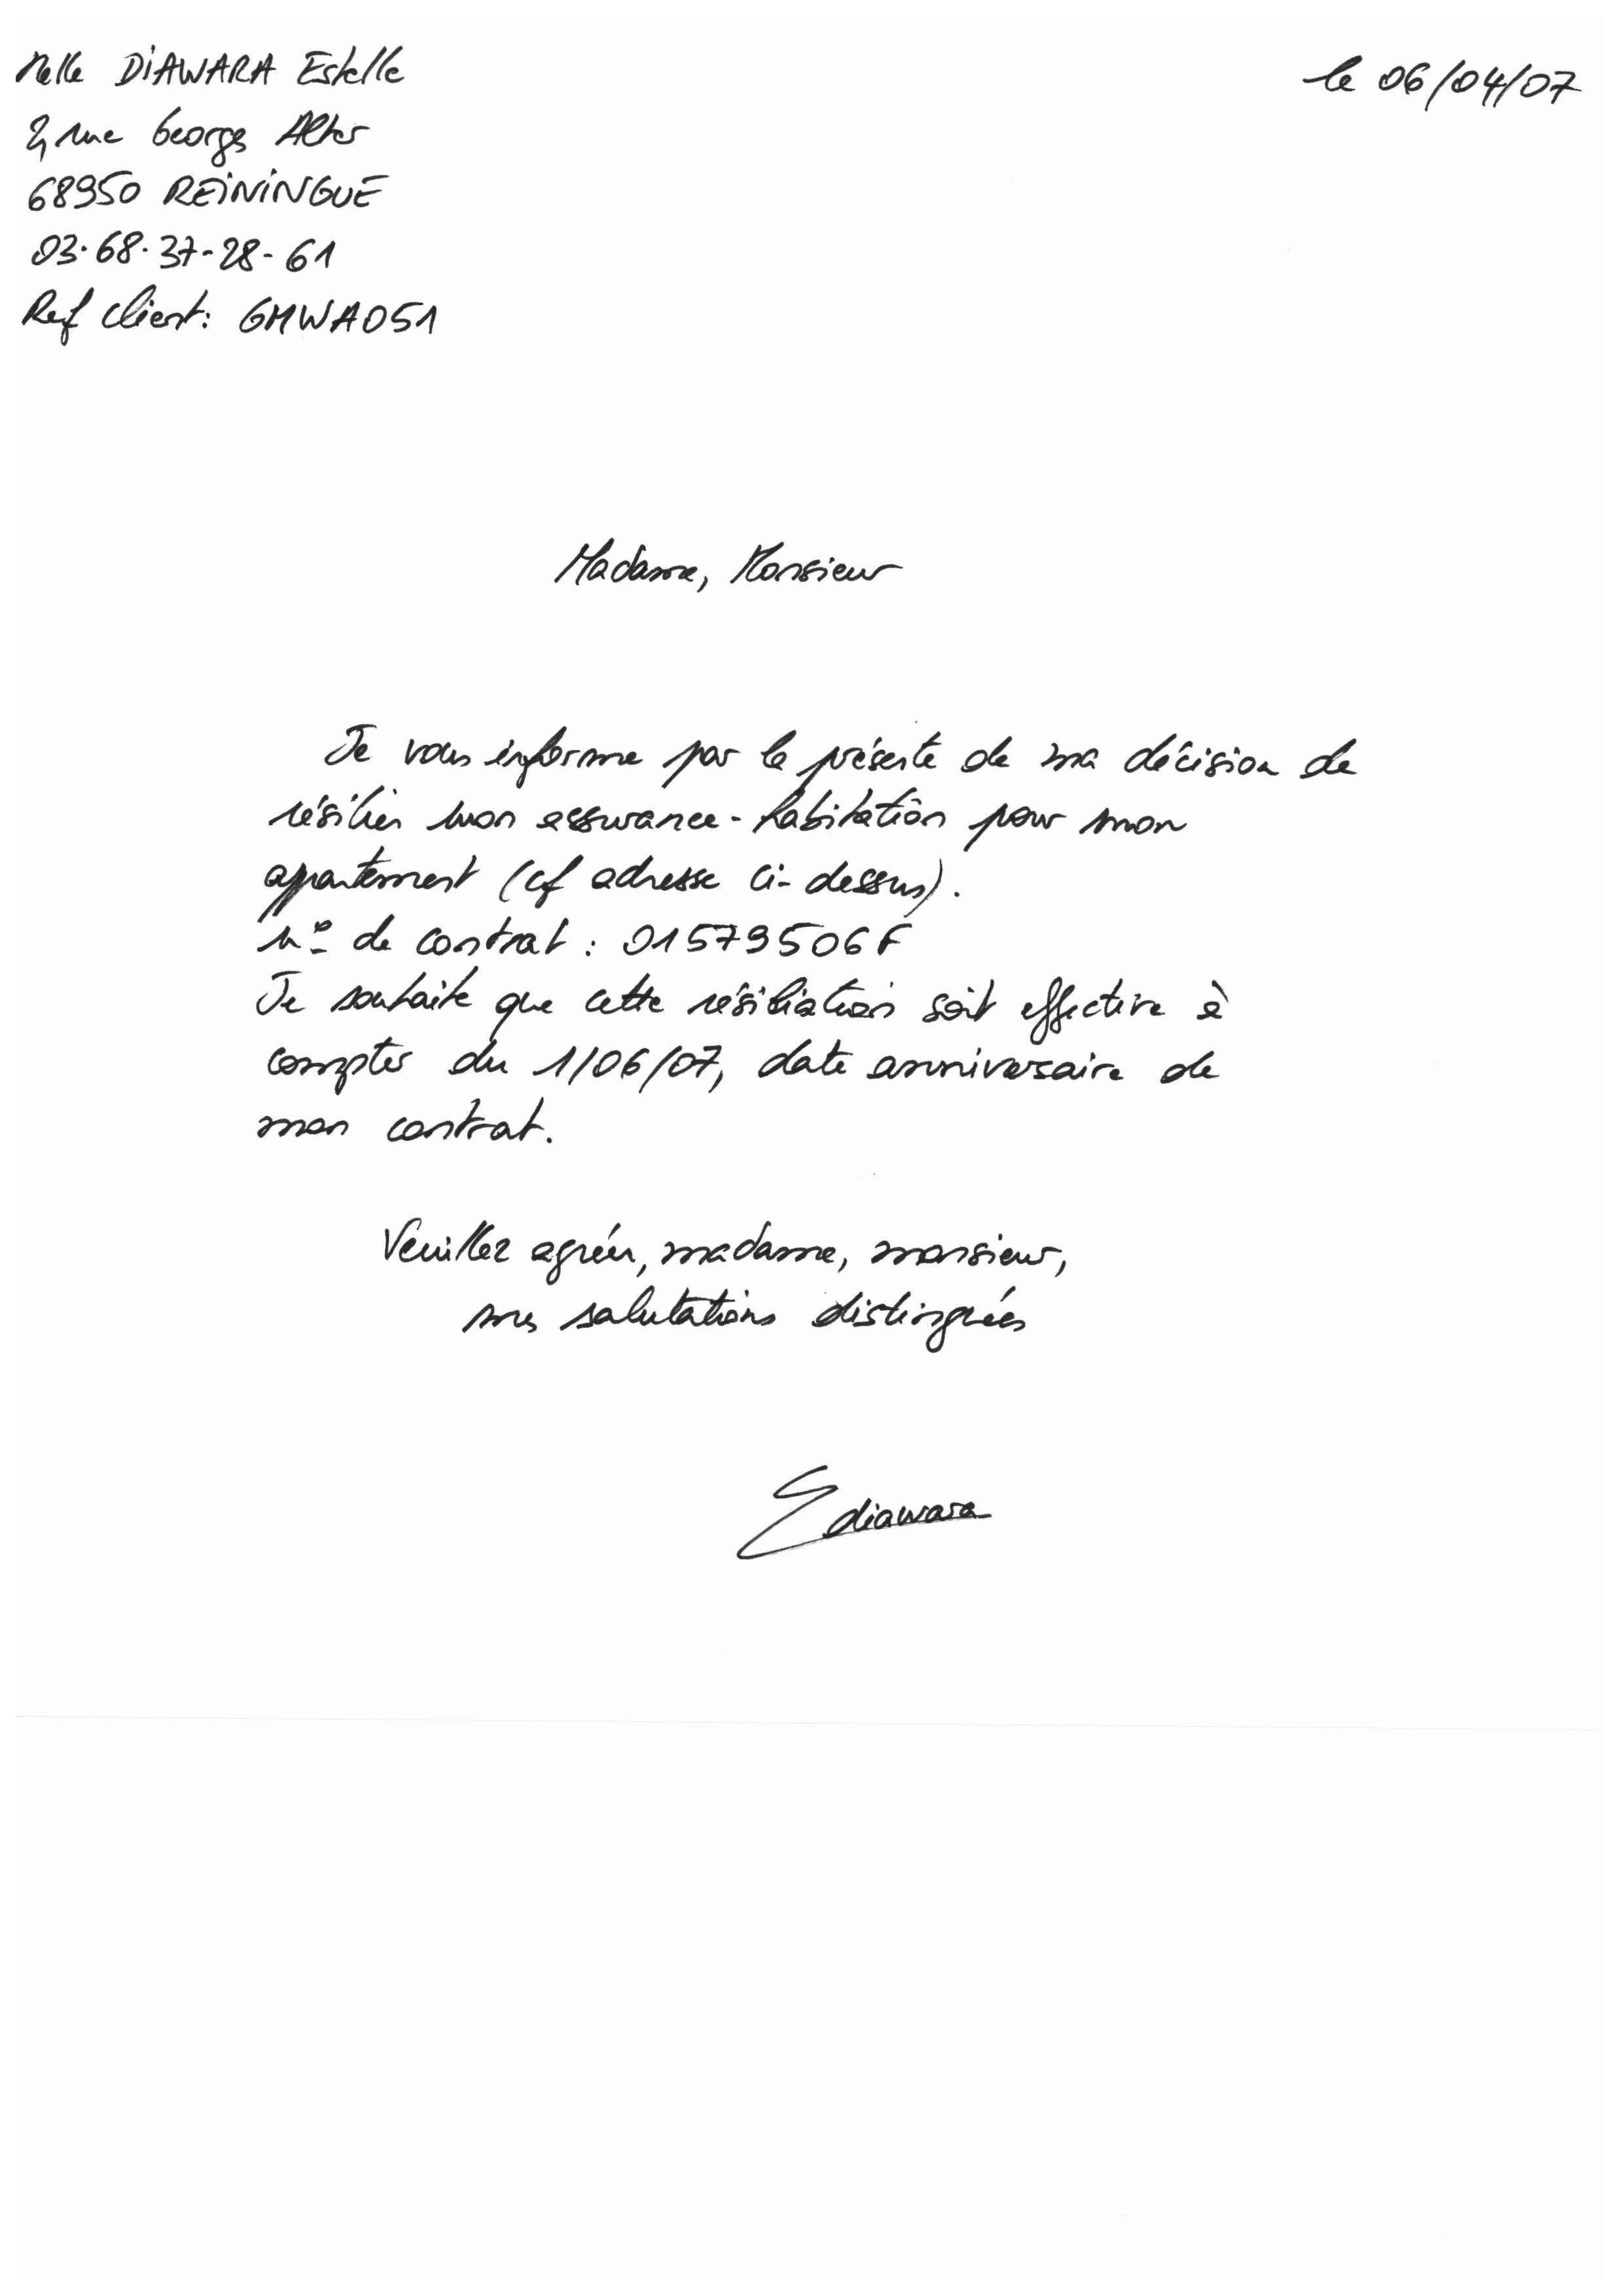 Melle DIAWARA Estelle
2, rue Georges Alter
68950 REININGUE
03.68.37-28-61
Ref client: GMWA051
le 06/04/07
Madame, Monsieur
Je vous informe par la présente de ma décision de
résilier mon assurance-habitation pour mon
appartement (cf adresse ci-dessus).
n° de contrat : 01579506F
Je souhaite que cette résiliation soit effective à
compter du 1/06/07, date anniversaire de
mon contrat.
Veuillez agréer, madame, monsieur,
mes salutations distinguées
Ediawara